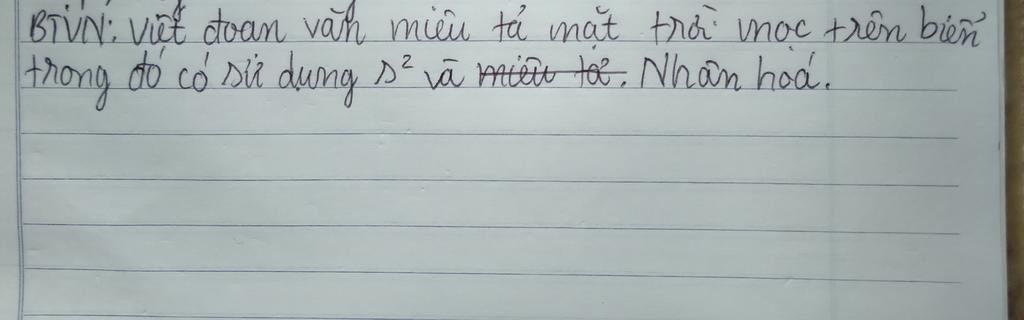 BTVN: Viết đoạn văn miêu tả mặt trời mọc trên biển
trong đó có sử dụng s² và ~~miêu tả.~~ Nhân hoá.